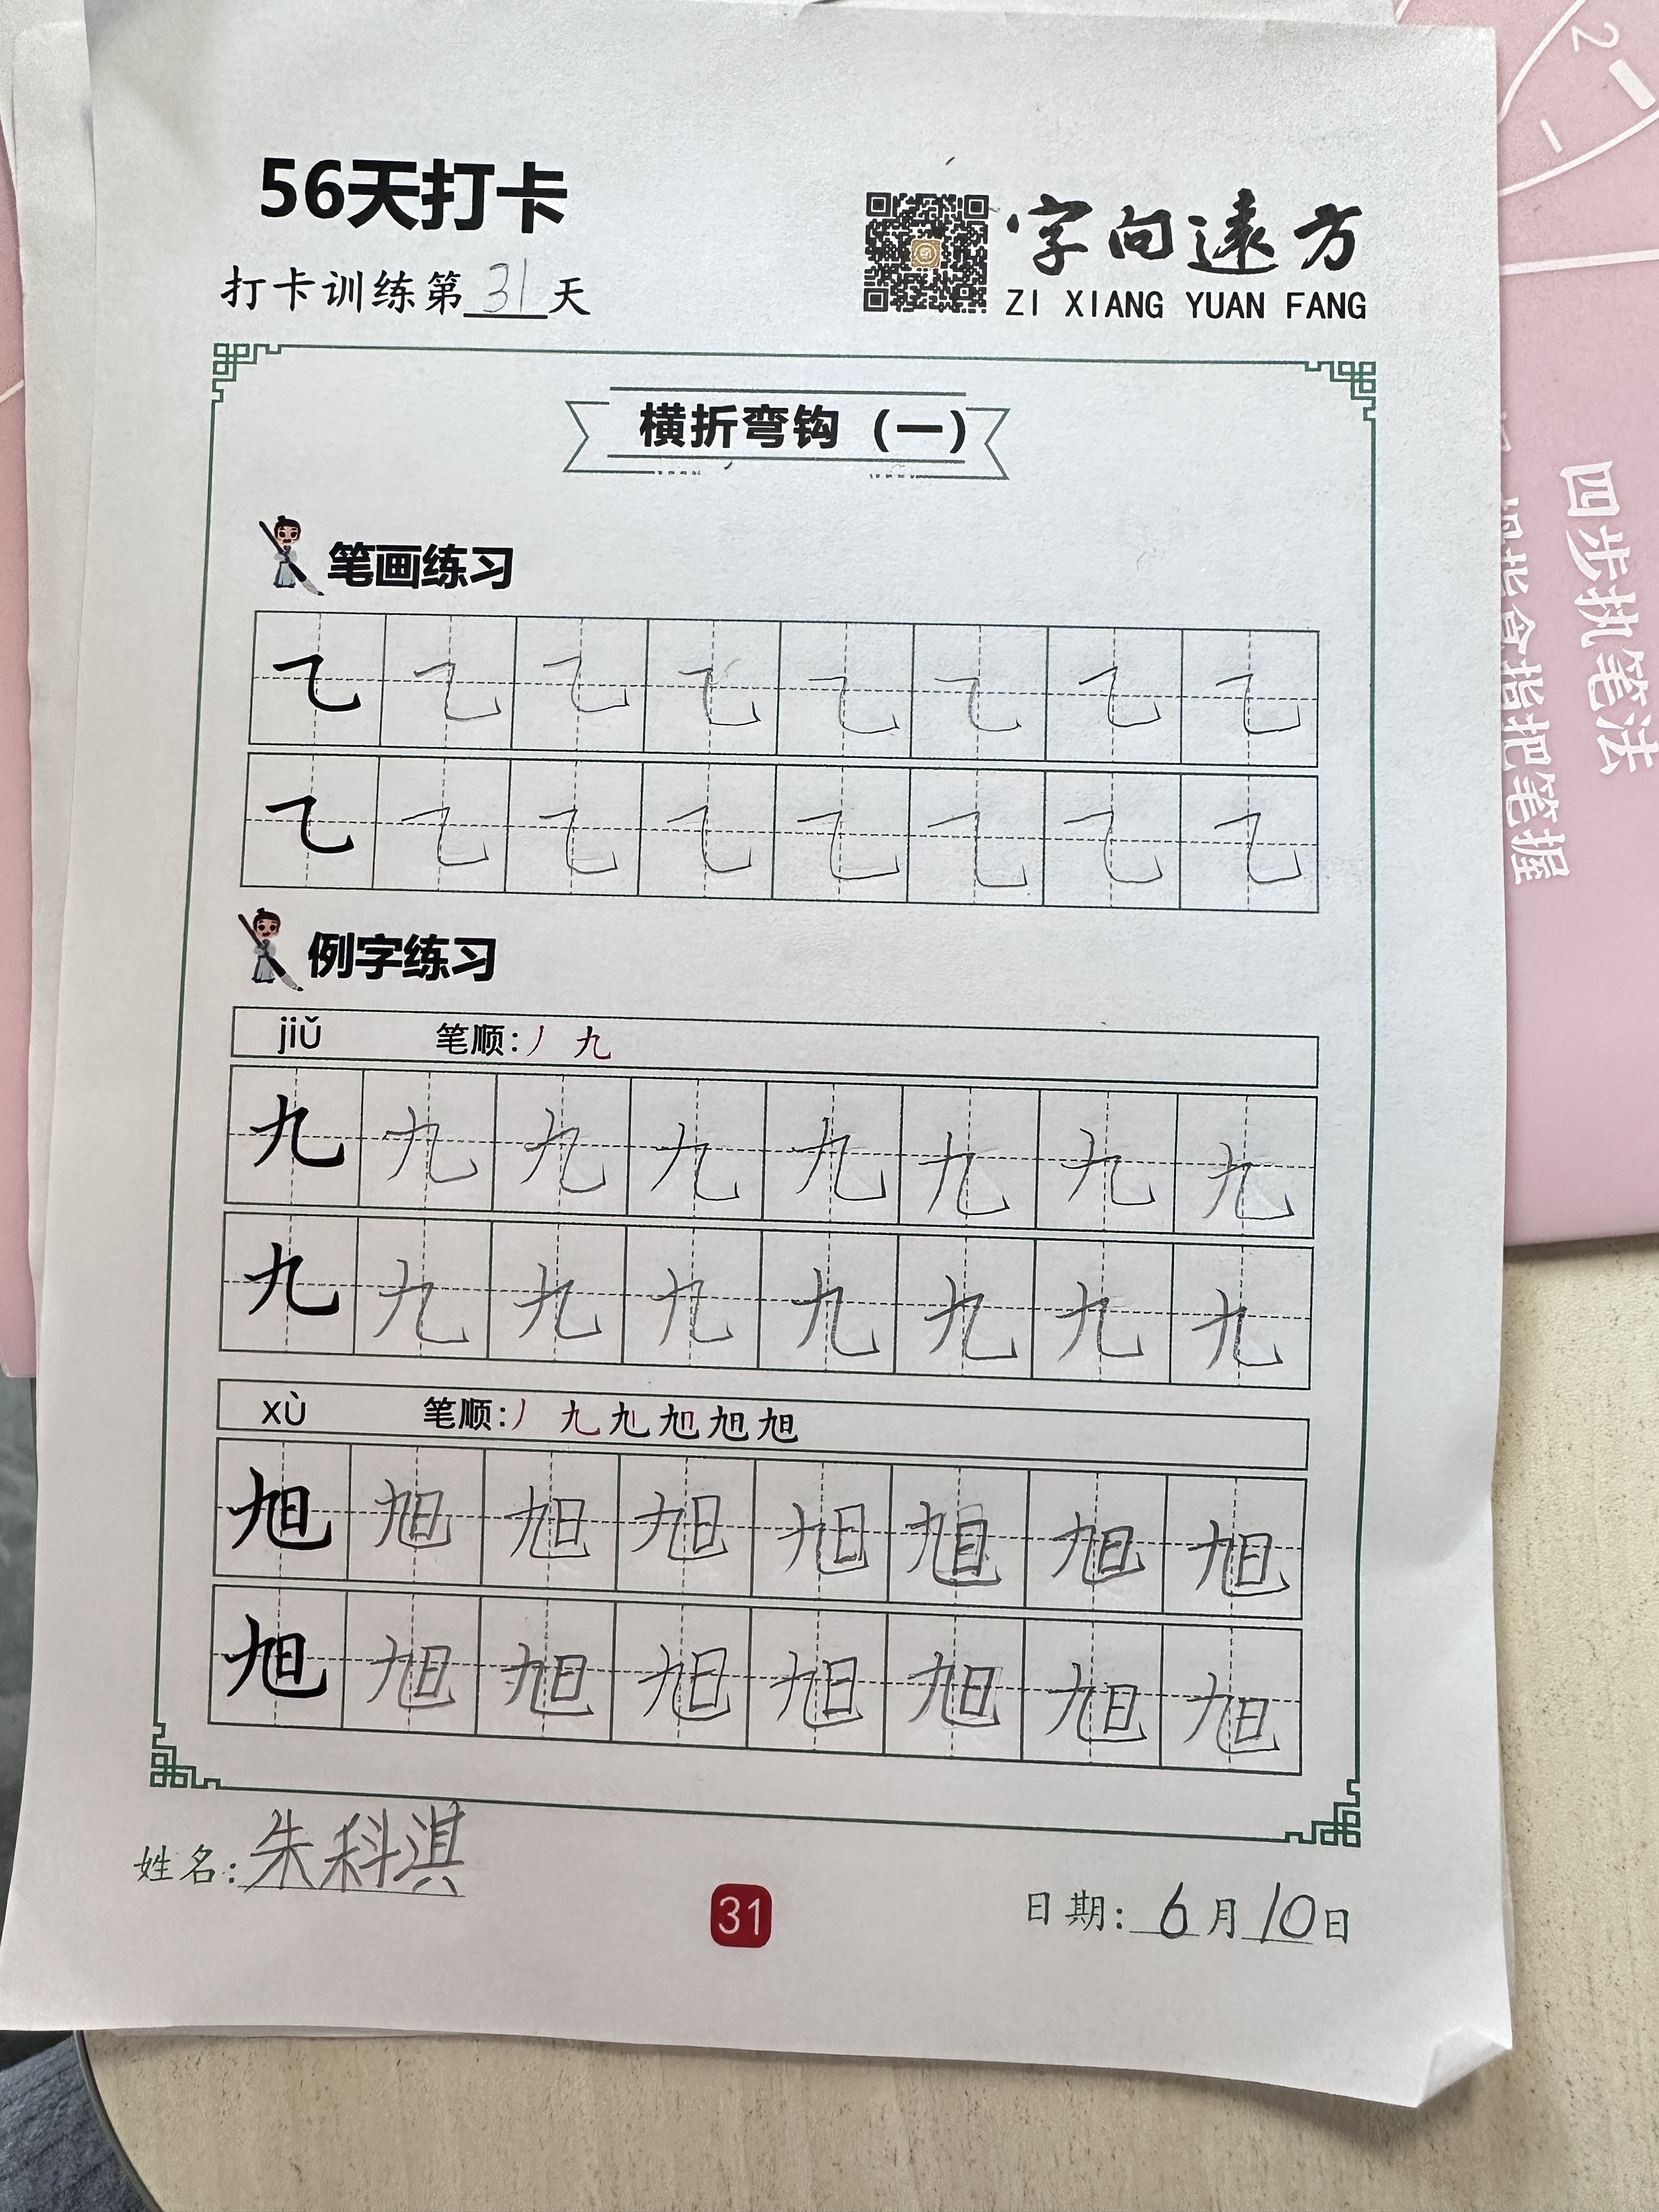 56天打卡
字向遠方
打卡训练第31天
ZI XIANG YUAN FANG
横折弯钩（一）
笔画练习
例字练习
jiǔ 笔顺：丿 九
九 九 九 九 九 九 九 九
九 九 九 九 九 九 九 九
xù 笔顺：丿 九 旭 旭 旭
旭 旭 旭 旭 旭 旭 旭 旭
旭 旭 旭 旭 旭 旭 旭 旭
姓名：朱科淇
31
日期：6月10日
2
四步执笔法
指含指把笔握